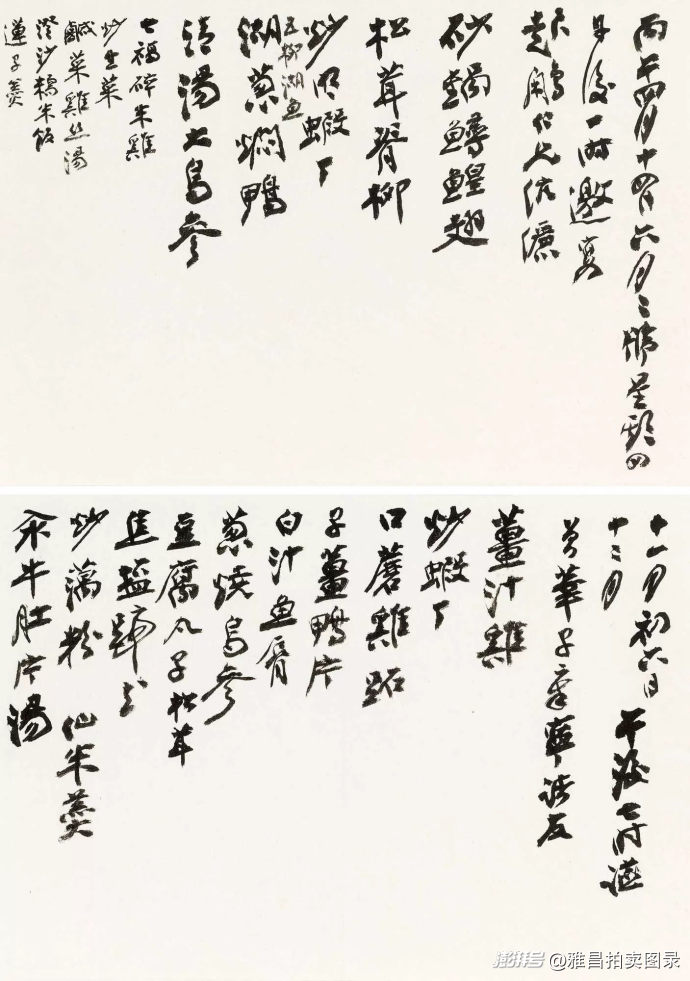 丙午四月十四日六月二號星期四
午後一時邀宴
伉儷
砂鍋鱘鰉翅
松茸脊柳
炒明蝦丁
五柳湖魚
湖葱燜鴨
清湯大烏參
七福碎米雞
炒生菜
鹹菜雞絲湯
澄沙糯米飯
蓮子羹
十一月初六日 午後七时讌
十二月
諸友
薑汁雞
炒蝦丁
口蘑雞跖
子薑鴨片
白汁魚唇
葱燒烏參
豆腐丸子松茸
焦鹽蹄子
炒藕粉 仙米羹
汆牛肚片湯
澎湃号 @雅昌拍卖图录